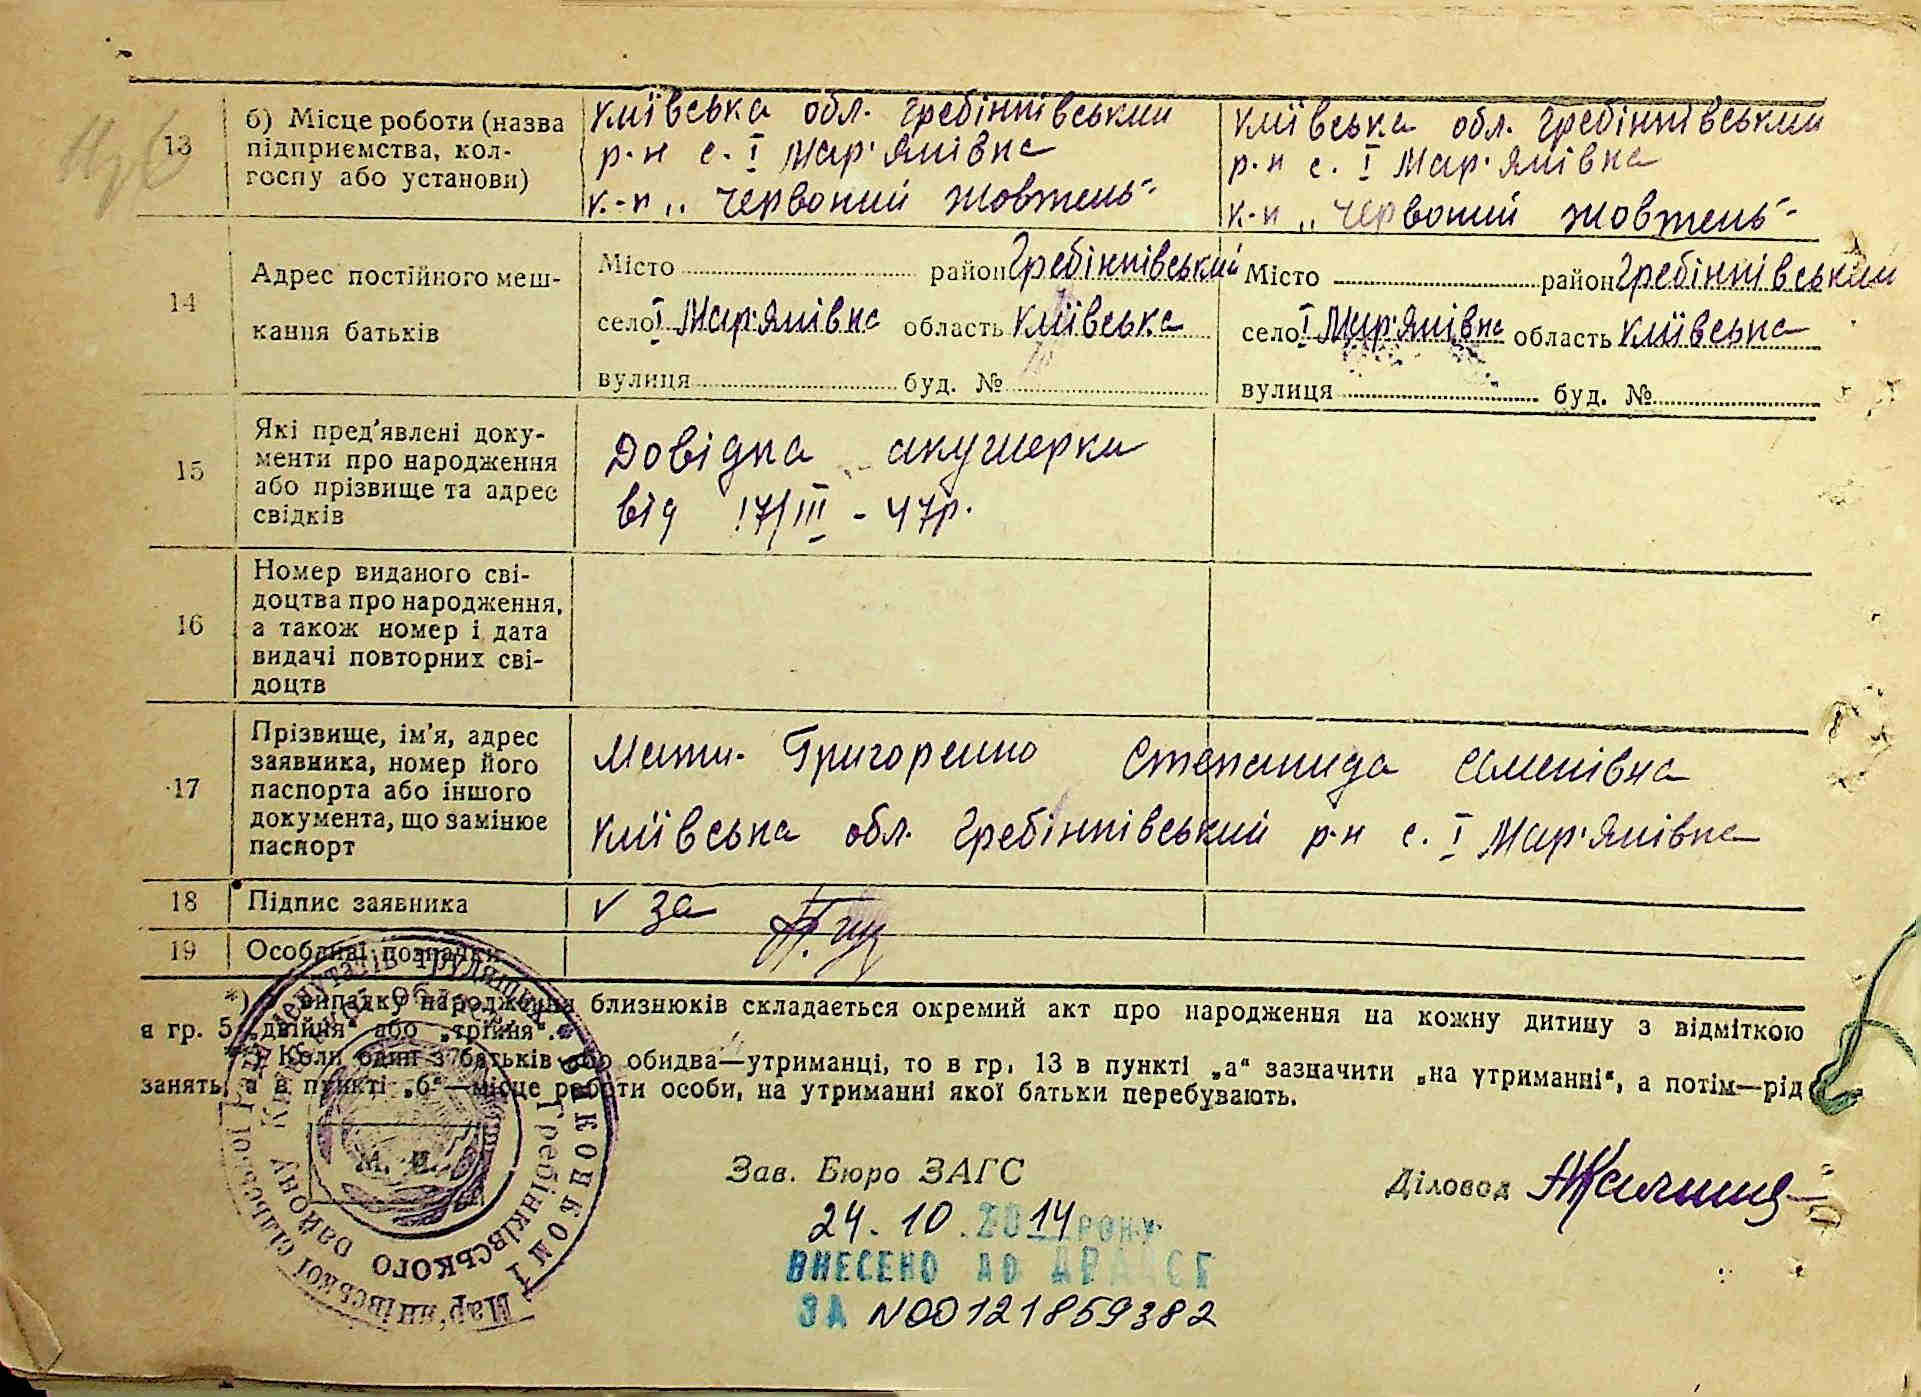 13
б) Місце роботи (назва
підприємства, кол-
госпу або установи)
Київська обл. Гребінківський
р-н с. І Мар'янівка
к-п „Червоний Жовтень"
Київська обл. Гребінківський
р-н с. І Мар'янівка
к-п „Червоний Жовтень"
14
Адрес постійного меш-
кання батьків
Місто район Гребінківський
село І Мар'янівка область Київська
вулиця буд. №
Місто район Гребінківський
село І Мар'янівка область Київська
вулиця буд. №
15
Які пред'явлені доку-
менти про народження
або прізвище та адрес
свідків
Довідка акушерки
від 17/III - 47р.
16
Номер виданого сві-
доцтва про народження,
а також номер і дата
видачі повторних сві-
доцтв
17
Прізвище, ім'я, адрес
заявника, номер його
паспорта або іншого
документа, що замінює
паспорт
Мати - Григоренко Степанида Семенівна
Київська обл. Гребінківський р-н с. І Мар'янівка
18
Підпис заявника
V за
19
Особливі познач­ки
*) У випадку народження близнюків складається окремий акт про народження на кожну дитину з відміткою
в гр. 5 „двійня" або „трійня".
**) Коли один з батьків або обидва—утриманці, то в гр. 13 в пункті „а" зазначити „на утриманні", а потім—рід
занять, а в пункті „б"—місце роботи особи, на утриманні якої батьки перебувають.
М. П.
Виконком Мар'янівської сільської Ради депутатів трудящих
Гребінківського району Київської області
Зав. Бюро ЗАГС
Діловод
24. 10. 2014 РОКУ
ВНЕСЕНО ДО ДРАЦСГ
ЗА №00121859382